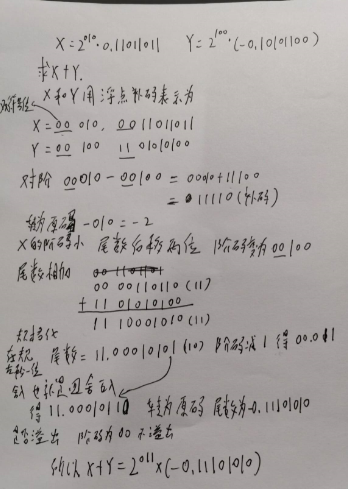 X=2^010·0.11011011 Y=2^100·(-0.10101100)
求X+Y.
X和Y用浮点补码表示为
X=00 010, 00 11011011
Y=00 100 11 01010100
对阶 00010-00100=00010+11100
=11110(补码)
转为原码 -010=-2
X的阶码小 尾数右移两位 阶码变为00100
尾数相加
00 00110110 (11)
+ 11 01010100
11 10001010 (11)
规格化
左规 尾数=11.00010101 (10) 阶码减1 得00.011
左移一位
舍入
得 11.00010110 转为原码 尾数为-0.11101010
是否溢出 阶码为00 不溢出
所以X+Y=2^011×(-0.11101010)